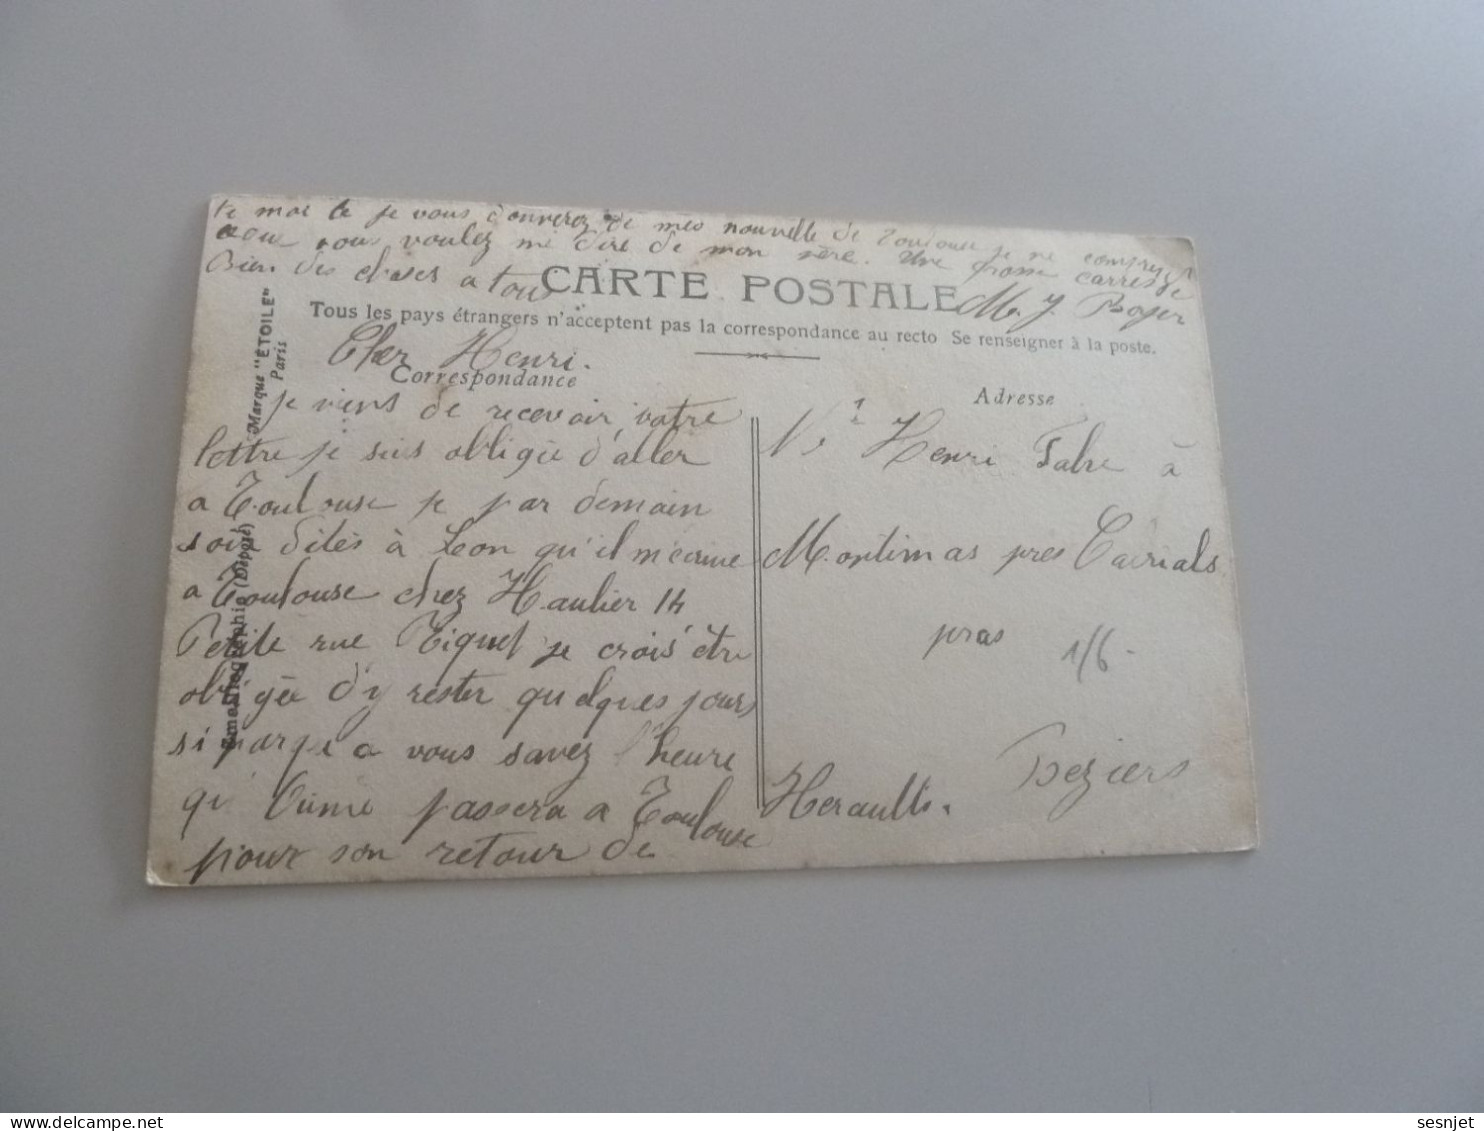 te moi le je vous donnerez de mes nouvelle de Toulouse je ne comprend
vous voulez me dire de mon père. Une grosse carresse
Bien des choses a tous
M. J. Boyer
CARTE POSTALE
Tous les pays étrangers n'acceptent pas la correspondance au recto Se renseigner à la poste.
Marque "ÉTOILE"
Paris
(Déposé)
Cher Henri.
Correspondance
je viens de recevoir votre
lettre je suis obligée d'aller
a Toulouse je par demain
soir dites à Leon qu'il m'ecrive
a Toulouse chez Haulier 14
Petite rue Riquet je crois être
obligée d'y rester quelques jours
si parqe a vous savez l'heure
qi passera a Toulouse
pour son retour de
Adresse
Mr Henri Fabre à
Montimas pres Cavials
pras 1/6-
Beziers
Herault.
sesnjet